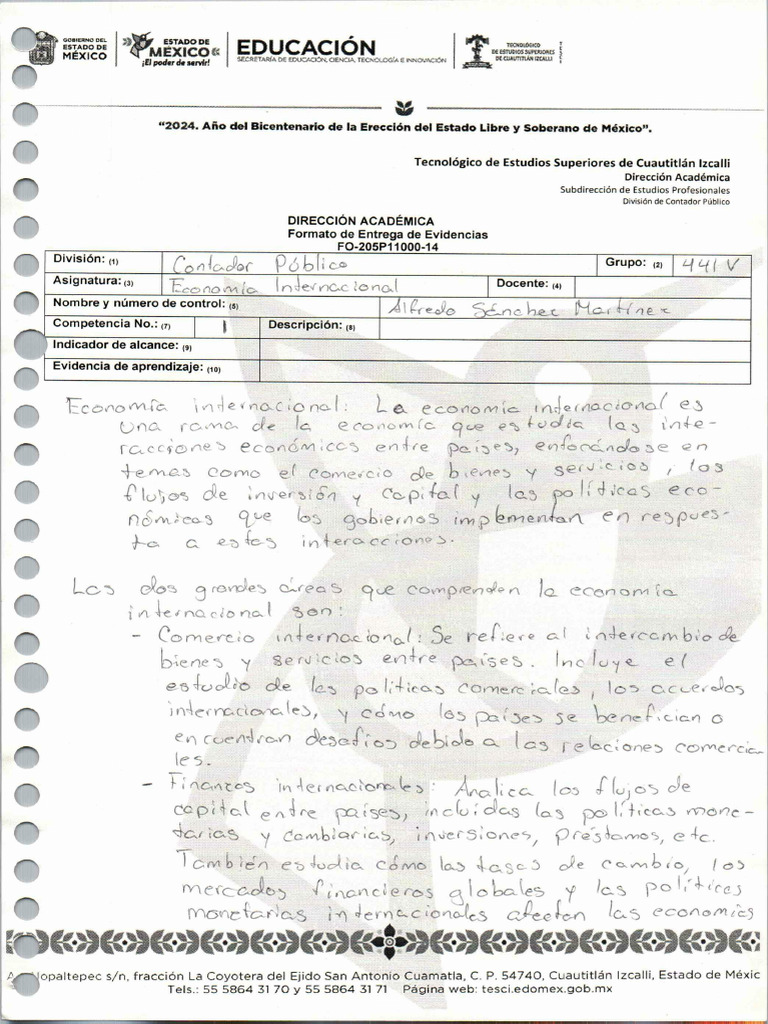 GOBIERNO DEL
ESTADO DE
MÉXICO
ESTADO DE
MÉXICO
¡El poder de servir!
EDUCACIÓN
SECRETARÍA DE EDUCACIÓN, CIENCIA, TECNOLOGÍA E INNOVACIÓN
TECNOLÓGICO
DE ESTUDIOS SUPERIORES
DE CUAUTITLÁN IZCALLI
"2024. Año del Bicentenario de la Erección del Estado Libre y Soberano de México".
Tecnológico de Estudios Superiores de Cuautitlán Izcalli
Dirección Académica
Subdirección de Estudios Profesionales
División de Contador Público
DIRECCIÓN ACADÉMICA
Formato de Entrega de Evidencias
FO-205P11000-14
División: (1) Contador Público Grupo: (2) 441 V
Asignatura: (3) Economía Internacional Docente: (4)
Nombre y número de control: (5) Alfredo Sánchez Martínez
Competencia No.: (7) 1 Descripción: (8)
Indicador de alcance: (9)
Evidencia de aprendizaje: (10)
Economía internacional: La economía internacional es
una rama de la economía que estudia las inte-
racciones económicas entre países, enfocándose en
temas como el comercio de bienes y servicios, los
flujos de inversión y capital y las políticas eco-
nómicas que los gobiernos implementan en respues-
ta a estas interacciones.
Las dos grandes áreas que comprenden la economía
internacional son:
- Comercio internacional: Se refiere al intercambio de
bienes y servicios entre países. Incluye el
estudio de las políticas comerciales, los acuerdos
internacionales, y cómo los países se benefician o
encuentran desafíos debido a las relaciones comercia-
les.
- Finanzas internacionales: Analica los flujos de
capital entre países, incluidas las políticas mone-
tarias y cambiarias, inversiones, préstamos, etc.
También estudia cómo las tasas de cambio, los
mercados financieros globales y las políticas
monetarias internacionales afectan las economías
opaltepec s/n, fracción La Coyotera del Ejido San Antonio Cuamatla, C. P. 54740, Cuautitlán Izcalli, Estado de Méxic
Tels.: 55 5864 31 70 y 55 5864 31 71 Página web: tesci.edomex.gob.mx